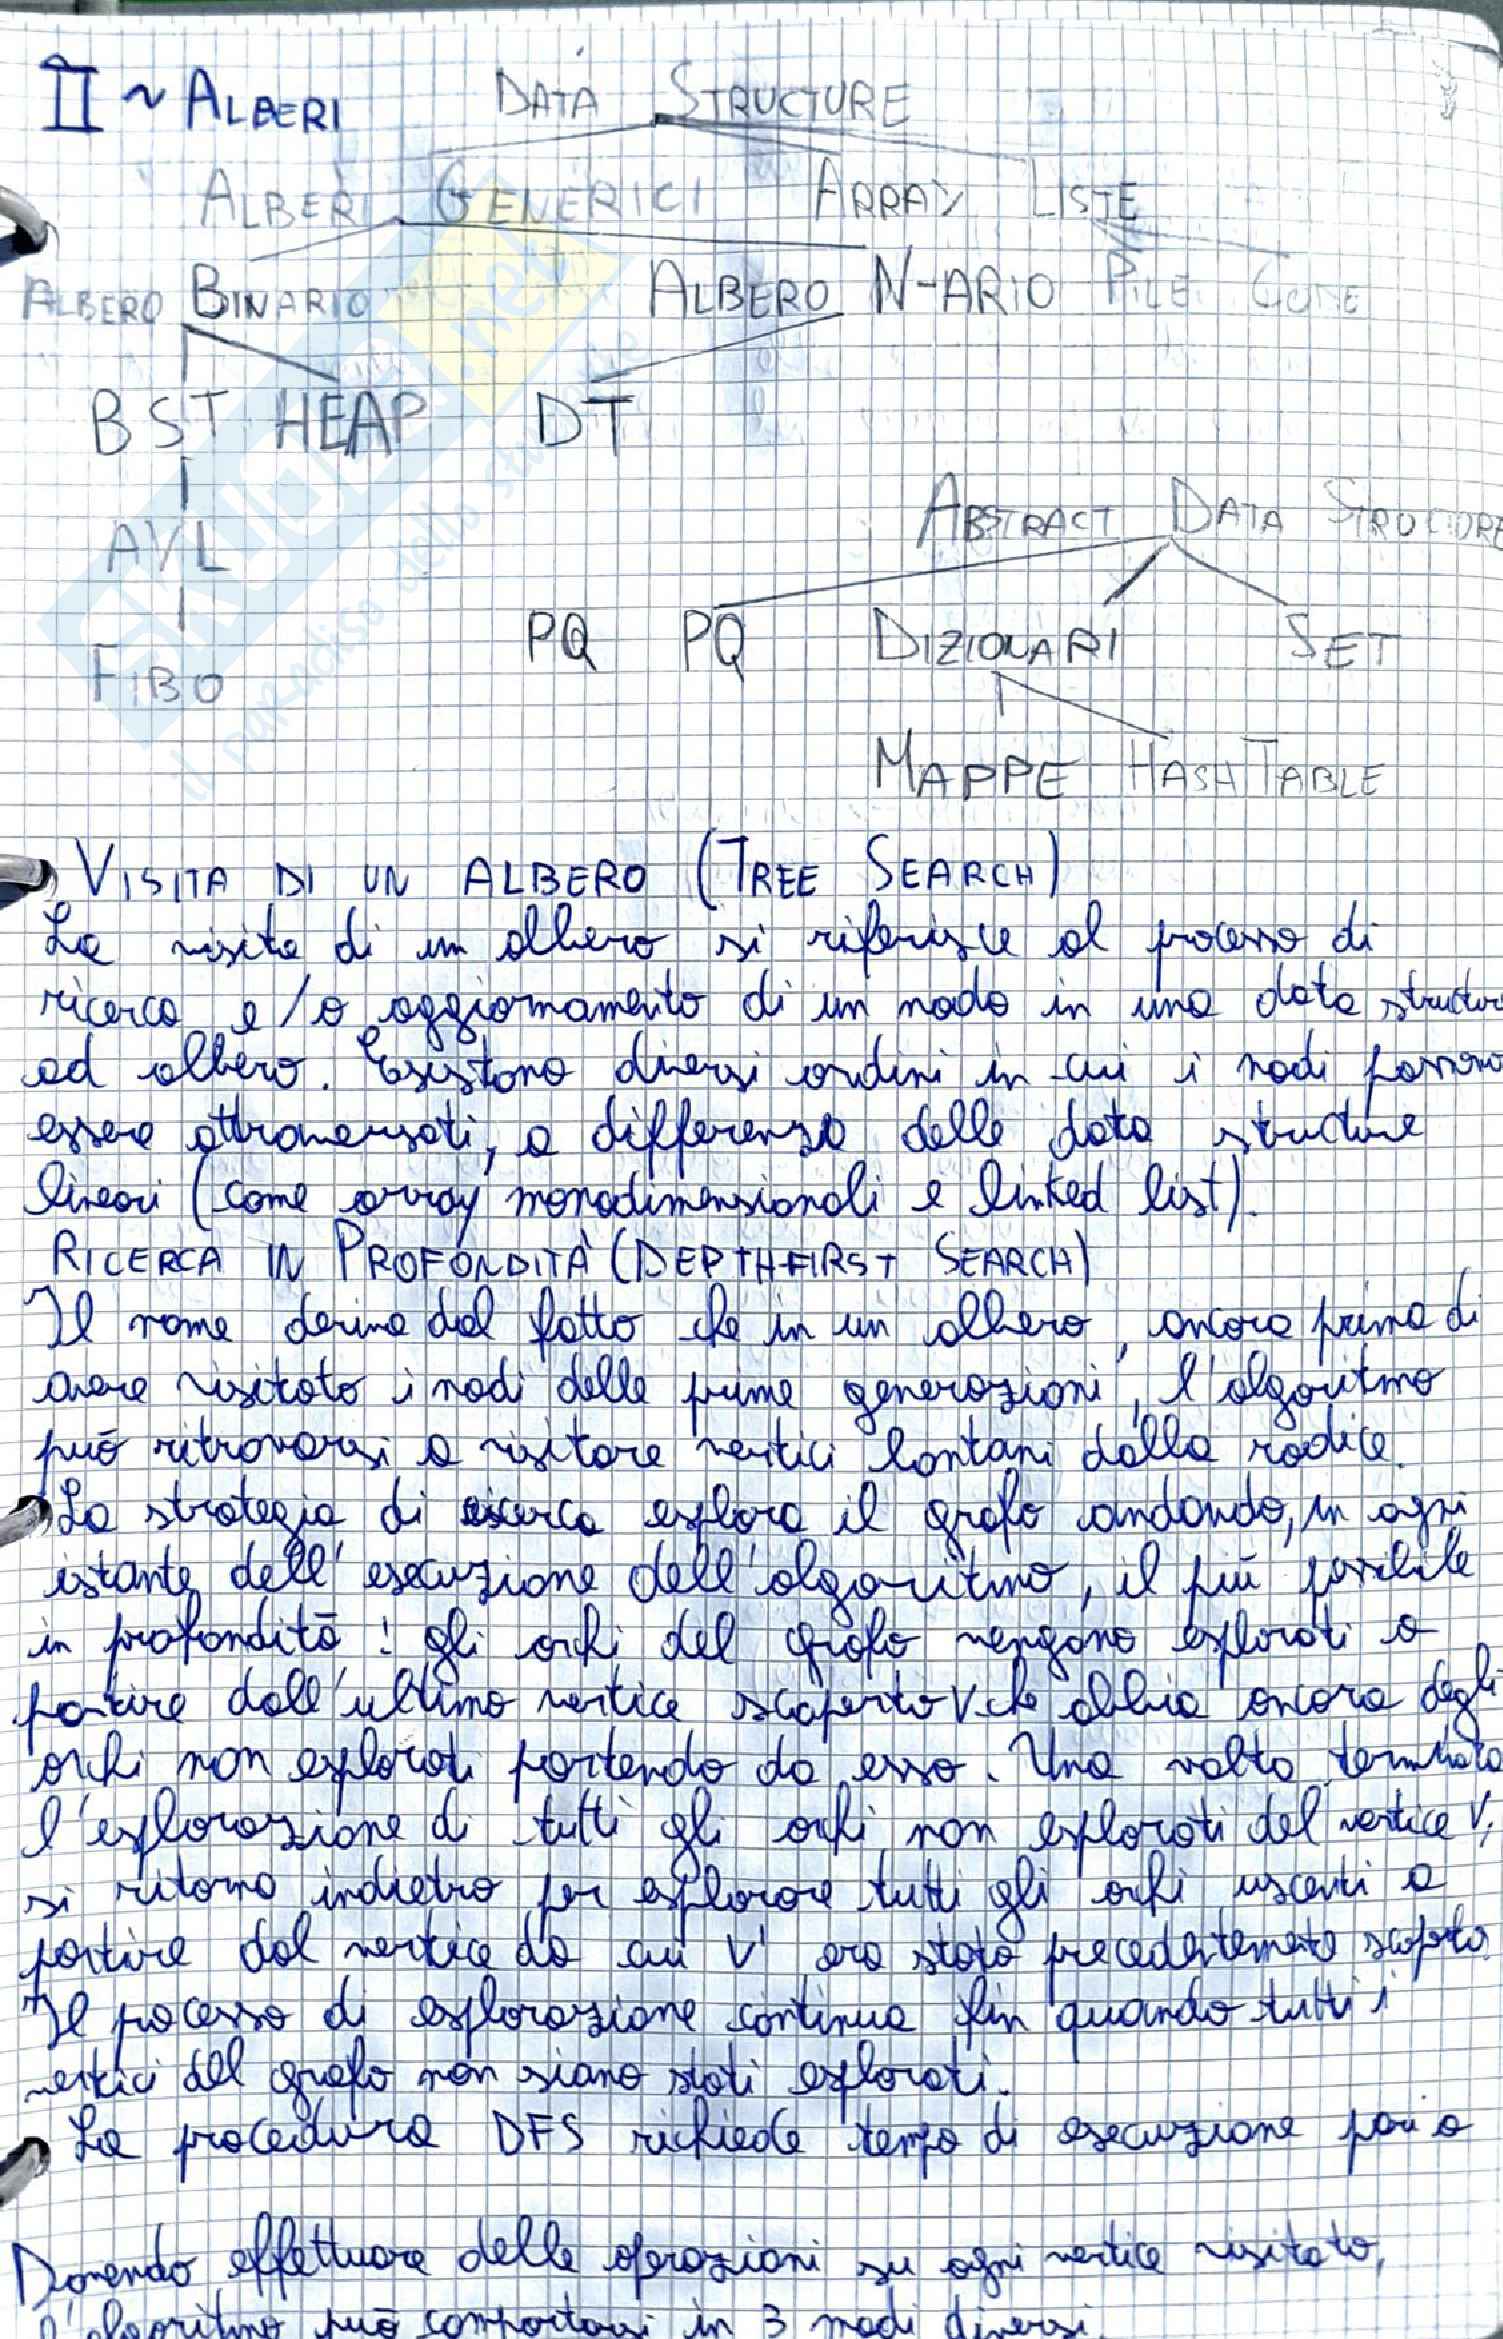 II ~ ALBERI DATA STRUCTURE
ALBERI GENERICI ARRAY LISTE
ALBERO BINARIO ALBERO N-ARIO PILE CODE
BST HEAP DT
ABSTRACT DATA STRUCTURE
AVL
PQ PQ DIZIONARI SET
FIBO
MAPPE HASH TABLE
SKUOLA.net
il paradiso dello studente
VISITA DI UN ALBERO (TREE SEARCH)
La visita di un albero si riferisce al processo di
ricerca e/o aggiornamento di un nodo in una data structure
ad albero. Esistono diversi ordini in cui i nodi possono
essere attraversati, a differenza delle data structure
lineari (come array monodimensionali e linked list).
RICERCA IN PROFONDITÀ (DEPTH-FIRST SEARCH)
Il nome deriva dal fatto che in un albero, ancora prima di
avere visitato i nodi delle prime generazioni, l'algoritmo
può ritrovarsi a visitare vertici lontani dalla radice.
La strategia di ricerca esplora il grafo andando, in ogni
istante dell'esecuzione dell'algoritmo, il più possibile
in profondità: gli archi del grafo vengono esplorati a
partire dall'ultimo vertice scoperto v che abbia ancora degli
archi non esplorati partendo da esso. Una volta terminata
l'esplorazione di tutti gli archi non esplorati del vertice v,
si ritorna indietro per esplorare tutti gli archi uscenti a
partire dal vertice da cui v era stato precedentemente scoperto.
Il processo di esplorazione continua fin quando tutti i
vertici del grafo non siano stati esplorati.
La procedura DFS richiede tempo di esecuzione pari a
Dovendo effettuare delle operazioni su ogni vertice visitato,
l'algoritmo può comportarsi in 3 modi diversi.